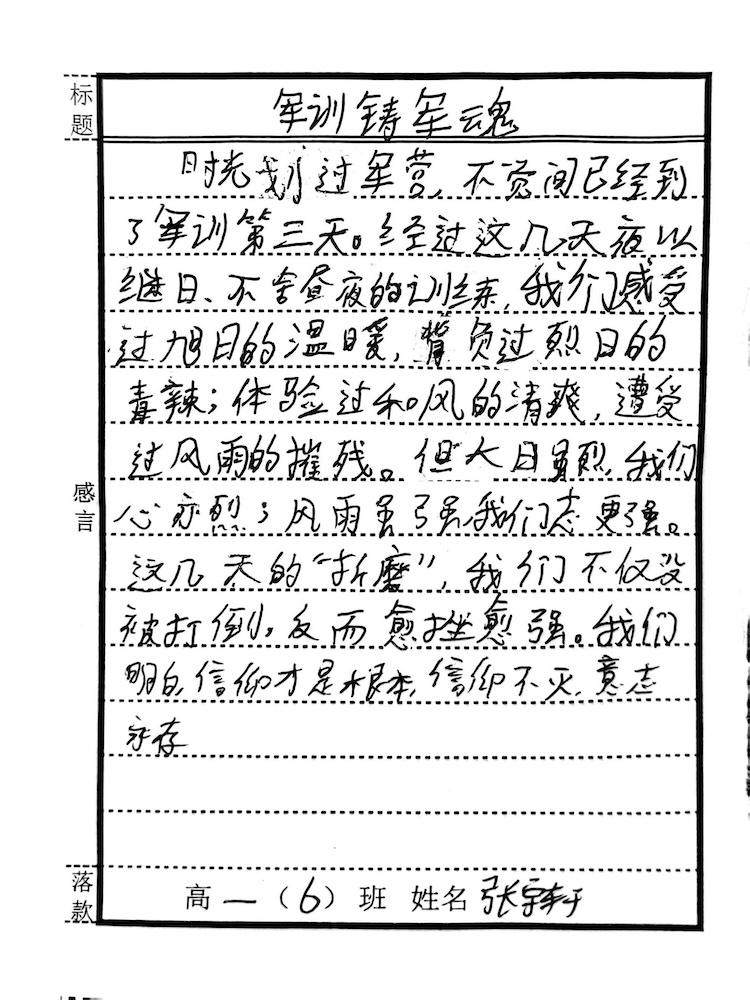 标题
军训铸军魂
时光划过军营,不觉间已经到
了军训第三天。经过这几天夜以
继日、不舍昼夜的训练,我们感受
过旭日的温暖,背负过烈日的
毒辣;体验过和风的清爽,遭受
过风雨的摧残。但大日虽烈,我们
感言
心亦烈;风雨虽强,我们志更强。
这几天的“折磨”,我们不仅没
被打倒,反而愈挫愈强。我们
明白,信仰才是根本,信仰不灭,意志
永存
落款
高一(6)班 姓名 张宇轩